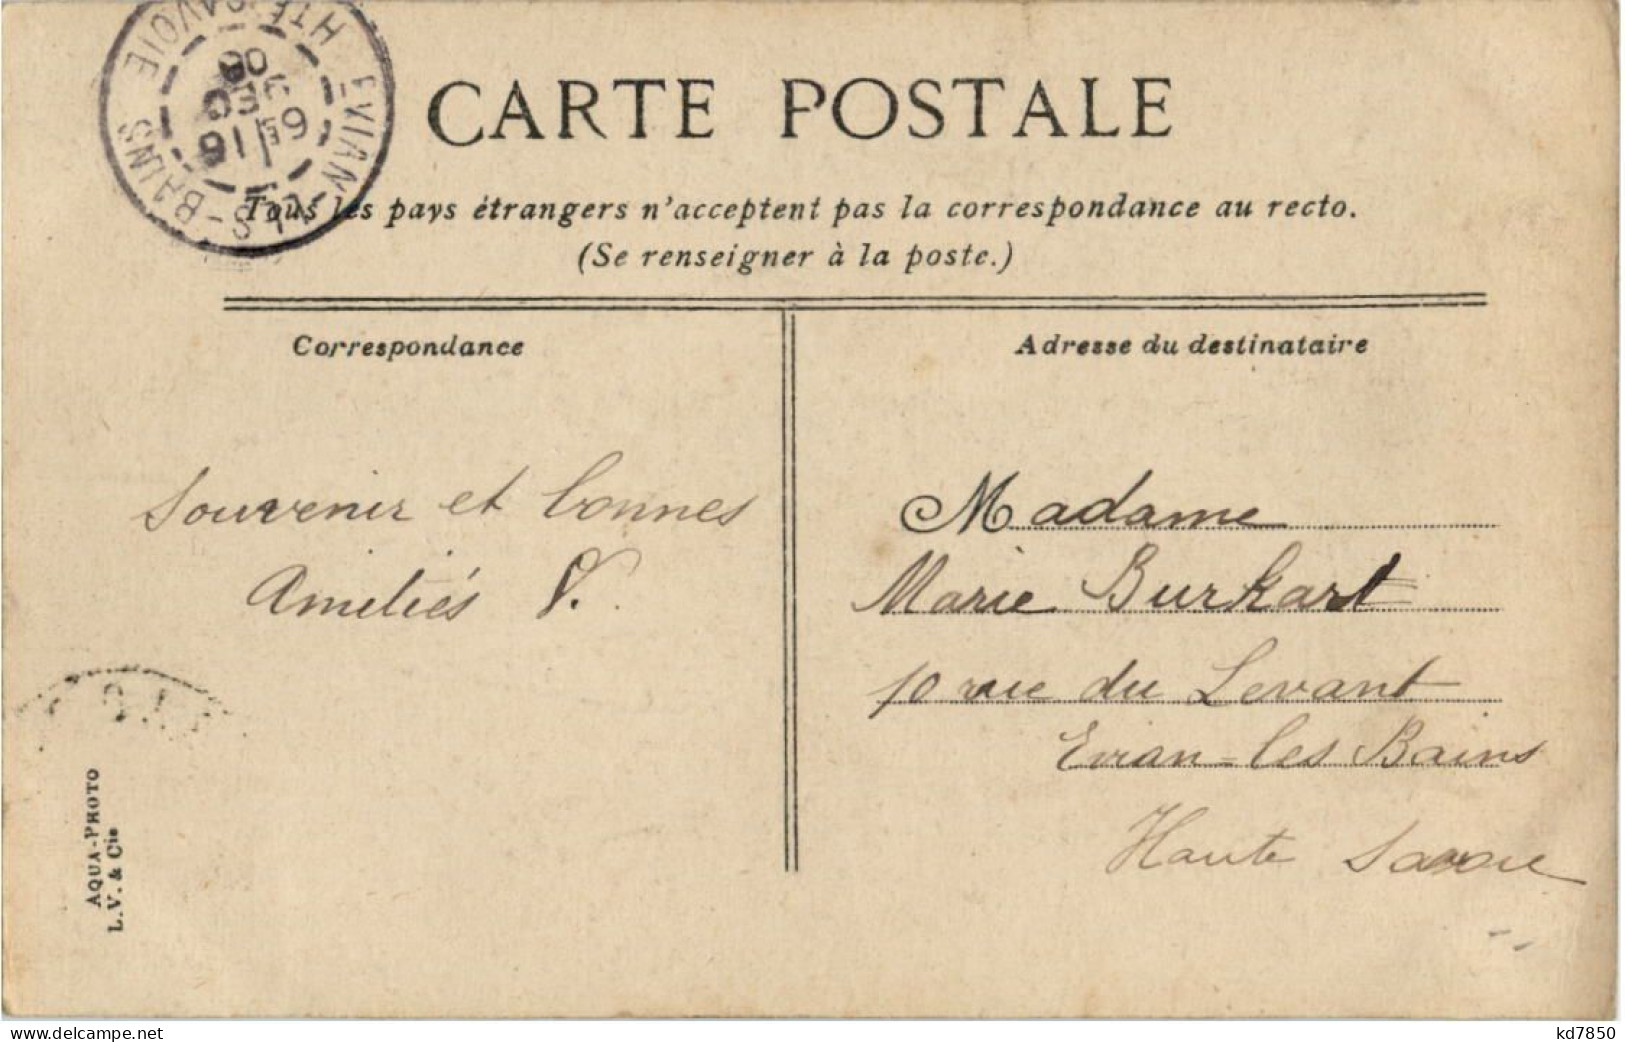 CARTE POSTALE
Tous les pays étrangers n'acceptent pas la correspondance au recto.
(Se renseigner à la poste.)
EVIAN-LES-BAINS
HTE SAVOIE
Correspondance
Souvenir et bonnes
Amitiés V.
AQUA-PHOTO
L.V. & Cie
Adresse du destinataire
Madame
Marie Burkart
10 rue du Levant
Evian-les Bains
Haute Savoie
www.delcampe.net
kd7850